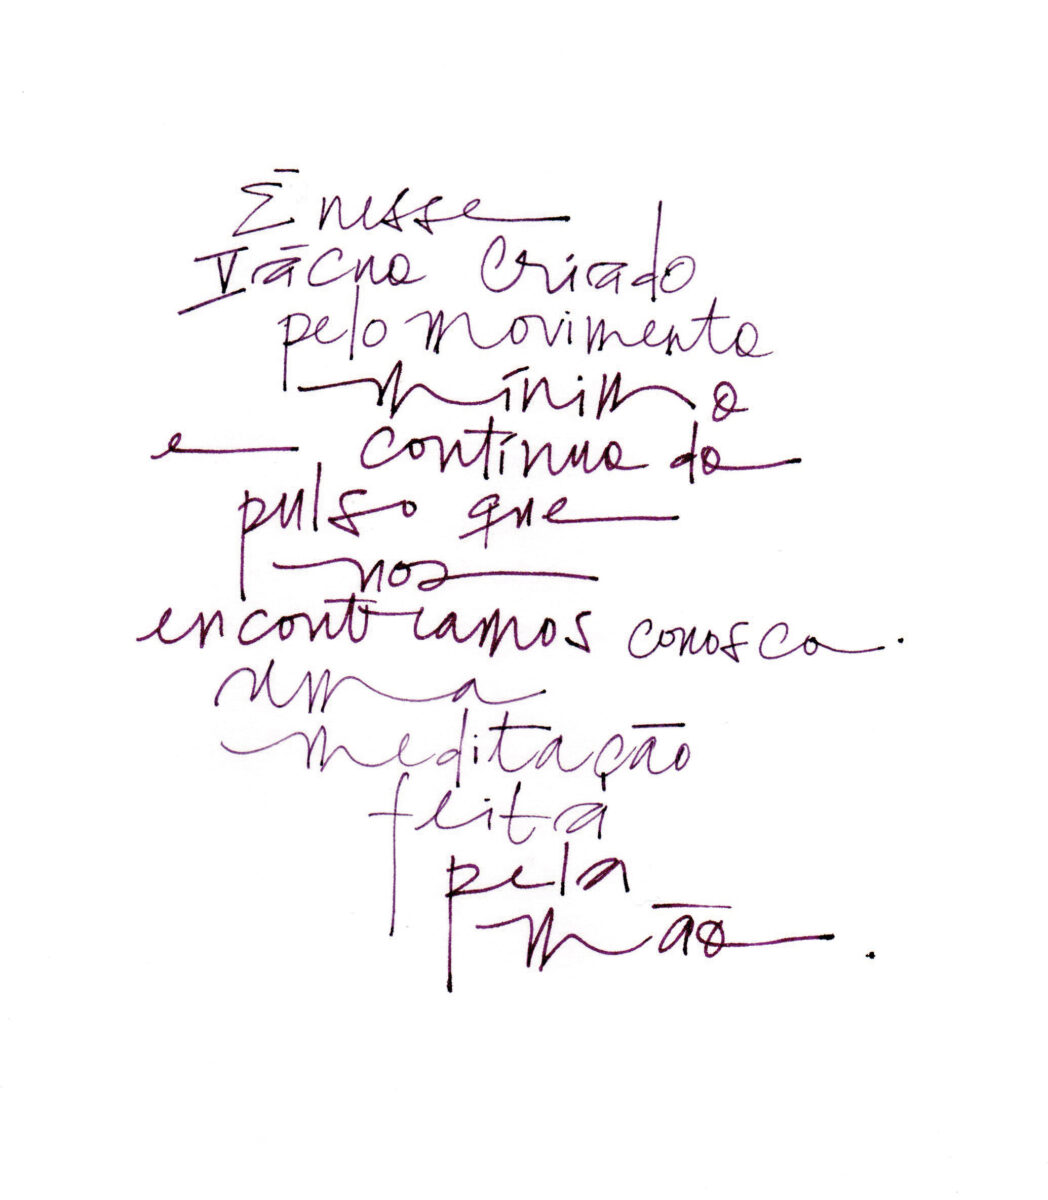 É nesse
Vácuo criado
pelo movimento
mínimo
e contínuo do
pulso que
nos
encontramos conosco.
uma
meditação
feita
pela
mão.